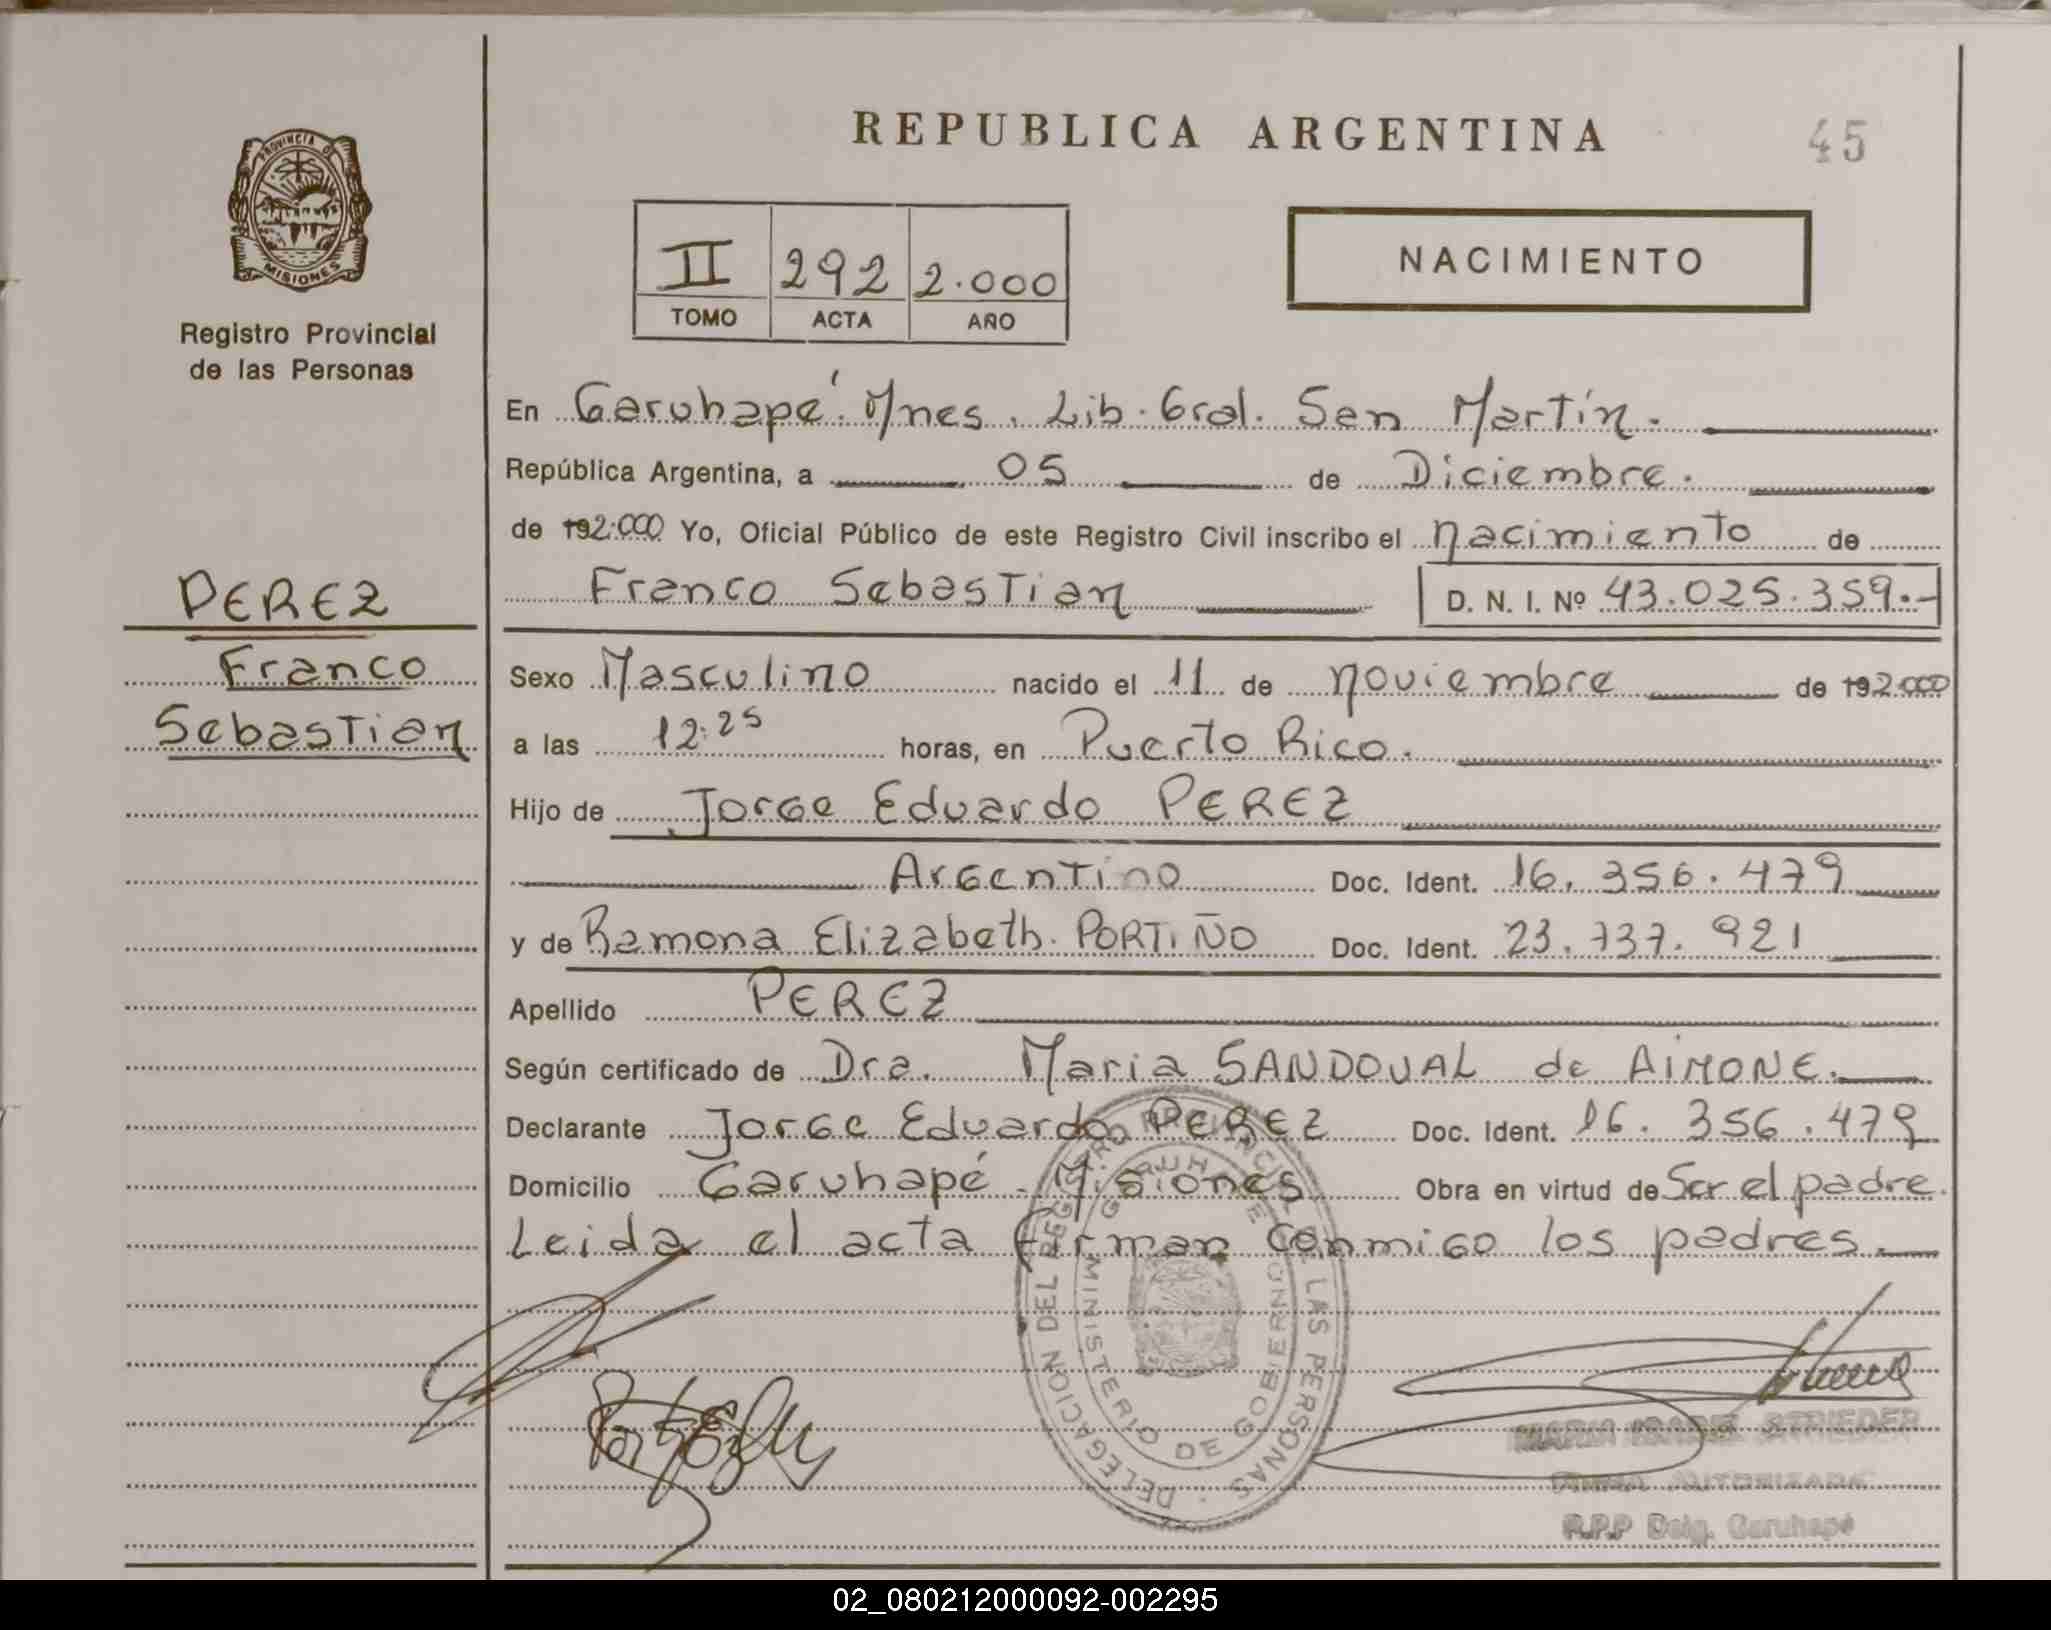 REPUBLICA ARGENTINA
45
PROVINCIA DE
MISIONES
Registro Provincial
de las Personas
II 292 2.000
TOMO ACTA AÑO
NACIMIENTO
En Garuhapé. Mnes. Lib. Gral. San Martín.
República Argentina, a 05 de Diciembre.
de 192.000 Yo, Oficial Público de este Registro Civil inscribo el nacimiento de
Franco Sebastian D. N. I. Nº 43.025.359.-
PEREZ
Franco
Sebastian
Sexo Masculino nacido el 11 de noviembre de 192.000
a las 12:25 horas, en Puerto Rico.
Hijo de Jorge Eduardo PEREZ
Argentino Doc. Ident. 16.356.479
y de Ramona Elizabeth PORTIÑO Doc. Ident. 23.737.921
Apellido PEREZ
Según certificado de Dra. Maria SANDOVAL de AIMONE.
Declarante Jorge Eduardo PEREZ Doc. Ident. 16.356.479
Domicilio Garuhapé - Misiones Obra en virtud de Ser el padre.
Leida el acta firman conmigo los padres.
DELEGACION DEL REGISTRO PROVINCIAL DE LAS PERSONAS
GARUHAPE
MINISTERIO DE GOBIERNO
MARIA ISABEL STRIEDER
FIRMA AUTORIZADA
R.P.P Delg. Garuhapé
02_080212000092-002295